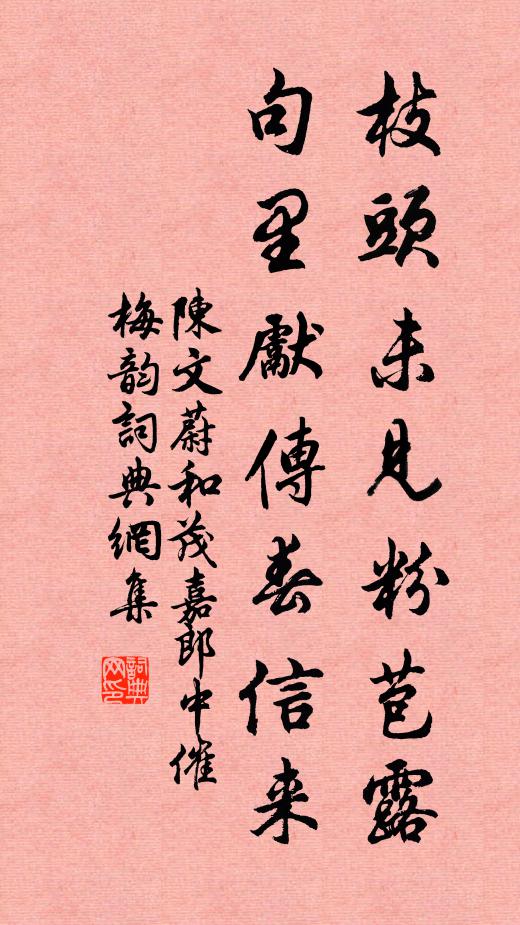 枝頭未見粉苞露
句里獻傳春信来
陳文蔚和茂嘉郎中催
梅韵詞典網集
詞典
网印